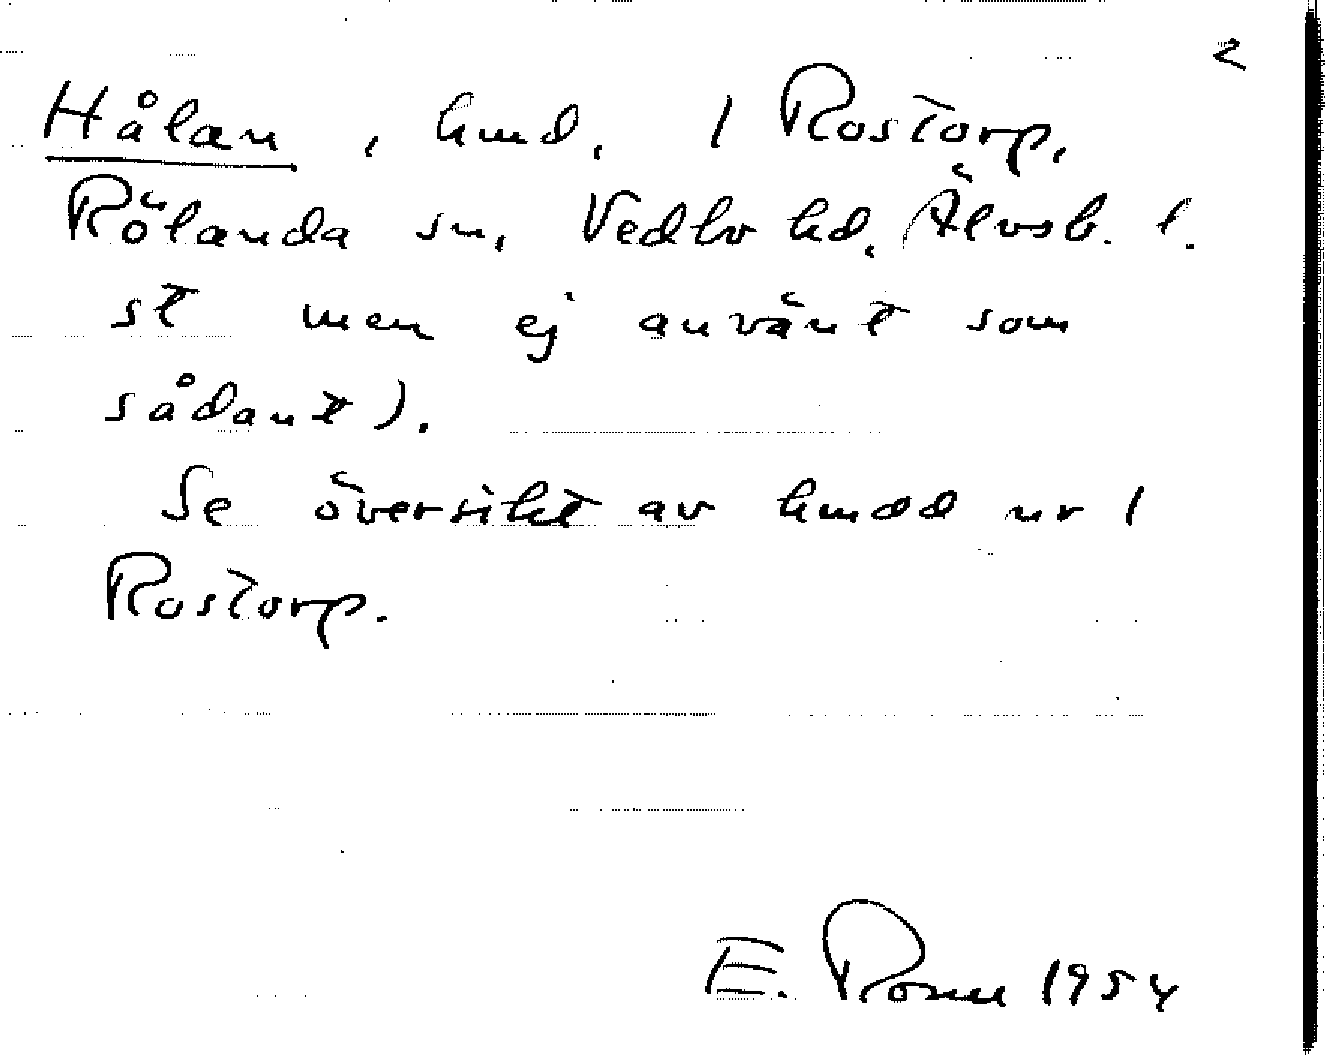 2
Hålan, hmd, 1 Rostorp,
Rölanda sn, Vedbo hd, Älvsb. l.
st men ej använt som
sådant).
Se översikt av hmdd nr 1
Rostorp.
E. 1954